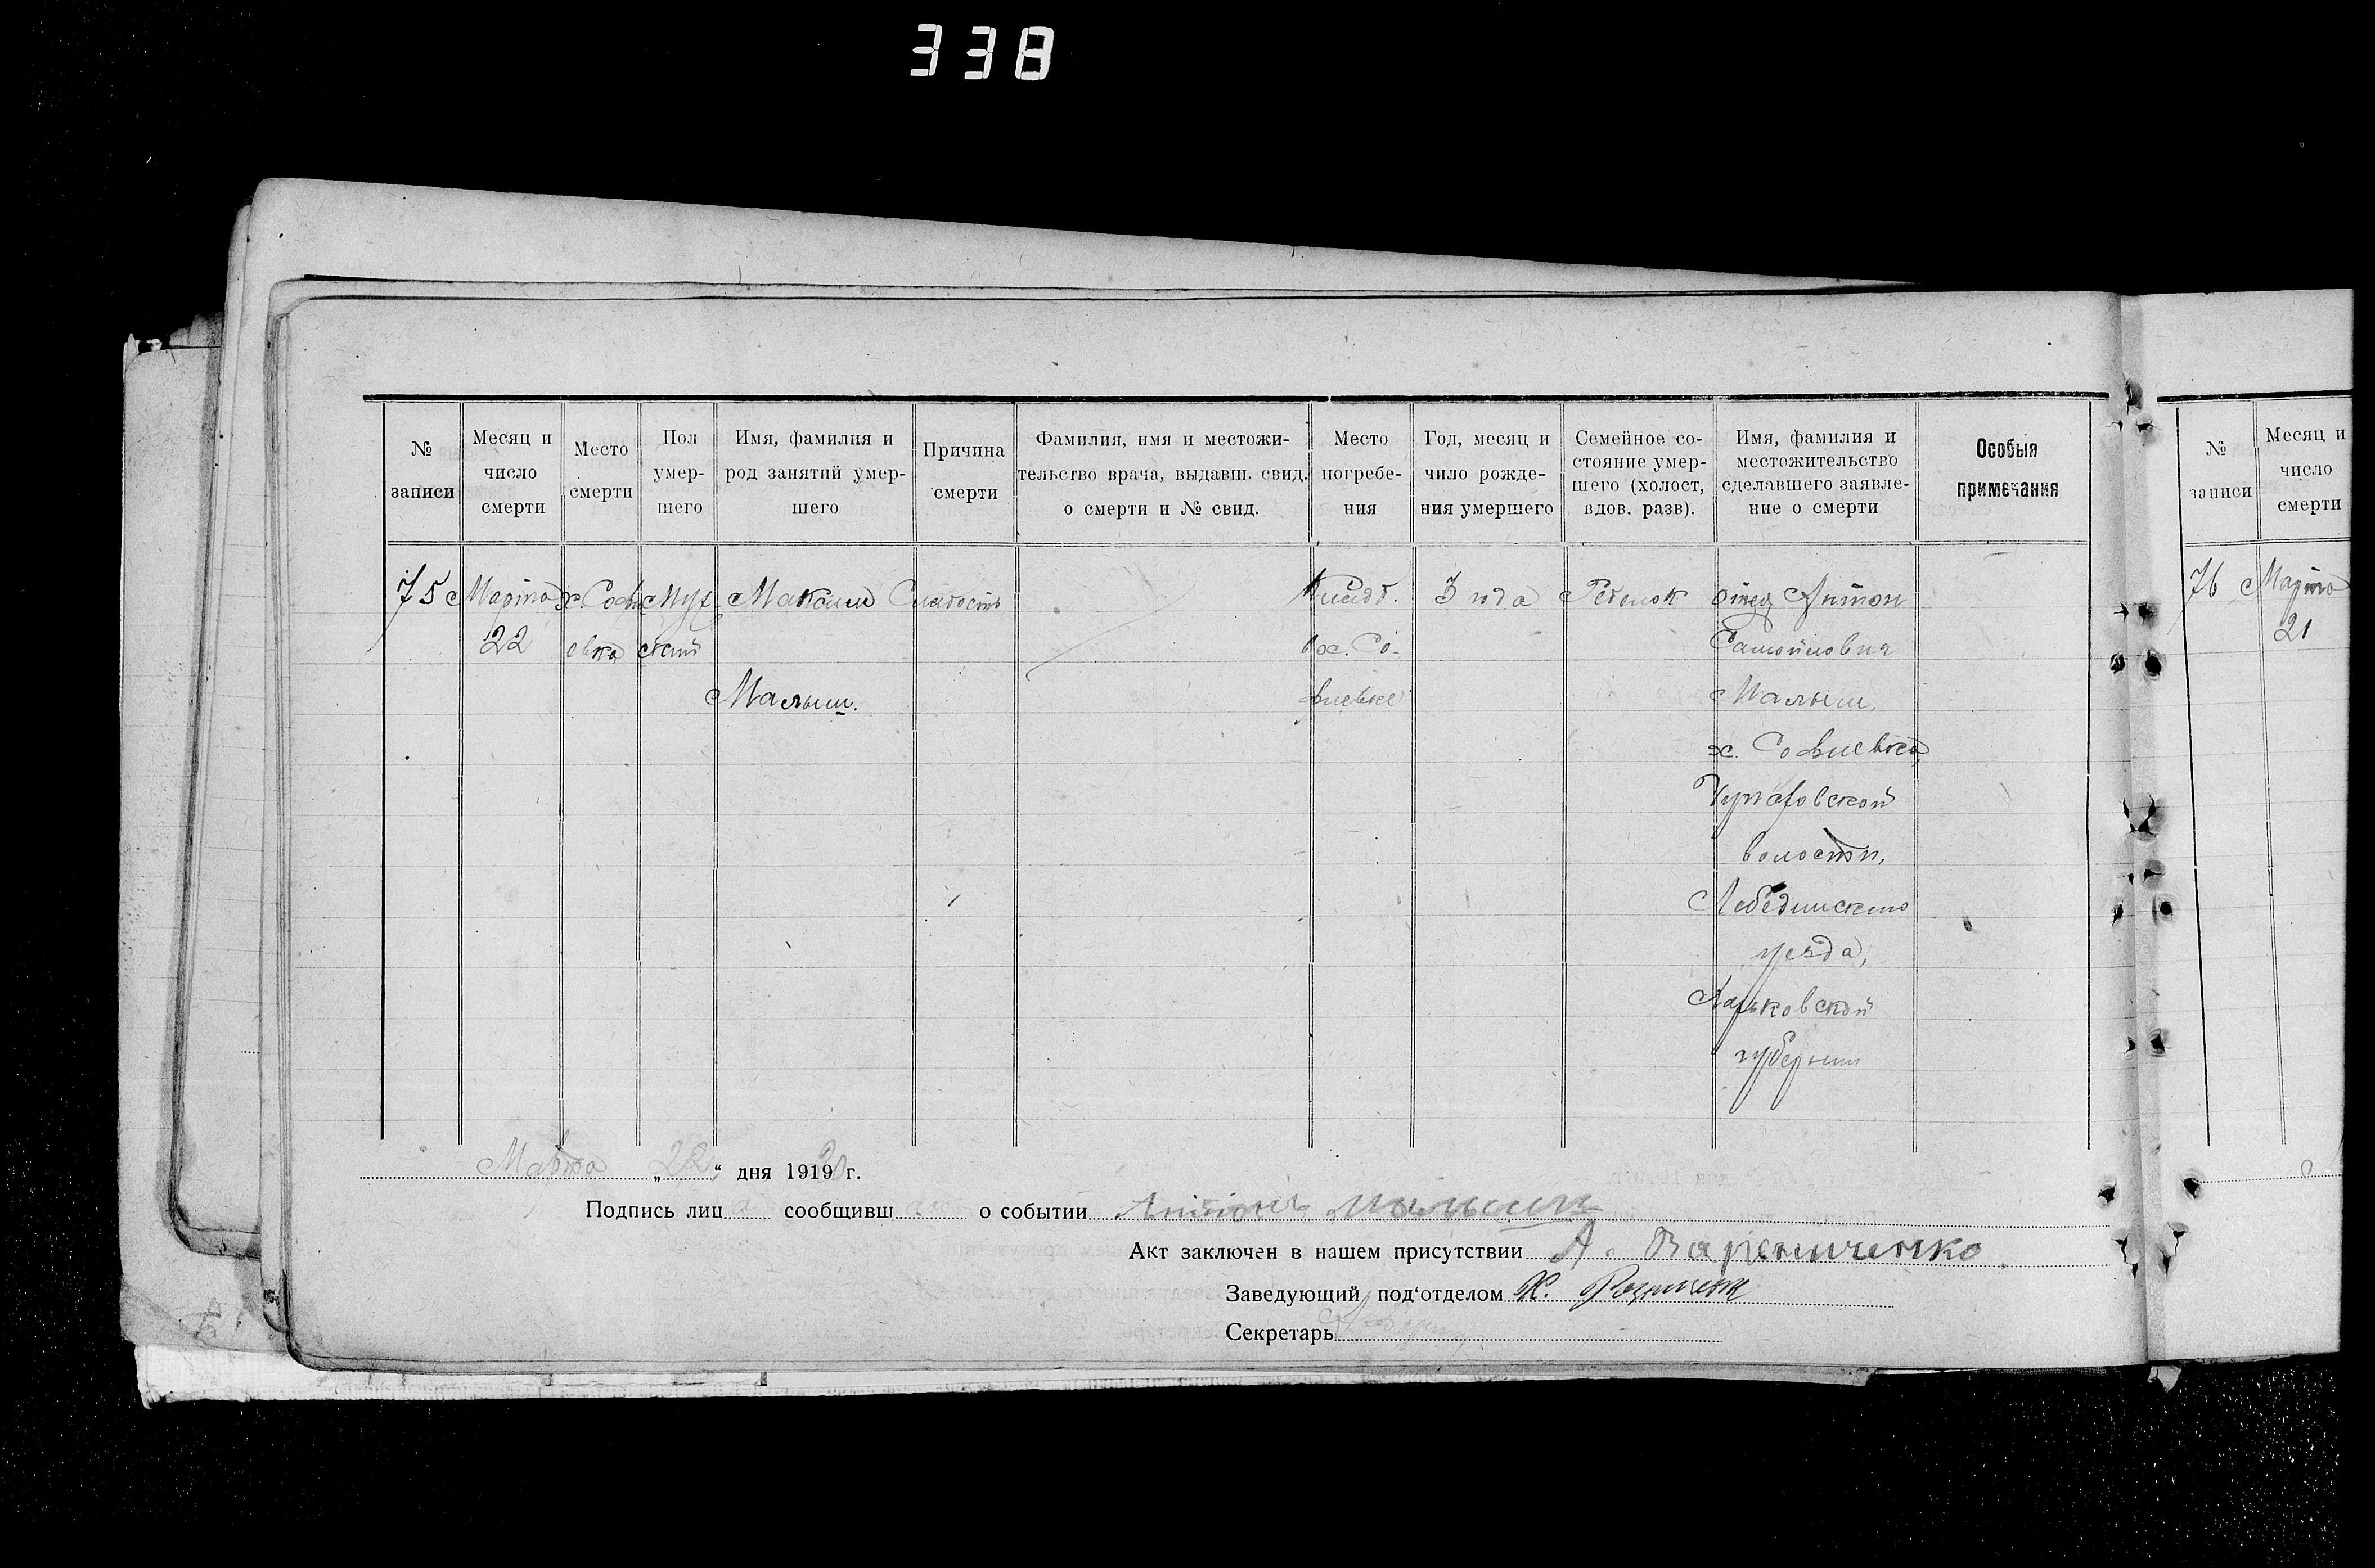 338
№ записи
Месяц и число смерти
Место смерти
Пол умер- шего
Имя, фамилия и род занятий умер- шего
Причина смерти
Фамилия, имя и местожи- тельство врача, выдавш. свид. о смерти и № свид.
Место погребе- ния
Год, месяц и чило рожде- ния умершего
Семейное со- стояние умер- шего (холост, вдов. разв).
Имя, фамилия и местожительство сделавшего заявле- ние о смерти
Особыя примечания
№ записи
Месяц и число смерти
75 Марта х. Софи Муж Максим Слабость Кладб. 3 года Ребенок отец Антон
22 евка ской в х. Со- Самойлович
Малыш. фиевке Малыш,
х. Софиевка,
волости,
Лебединского
уезда,
Харьковской
губернии
76 Марта
21
Марта „22“ дня 1919 г.
Подпись лиц а сообщивш о событии Антонъ Малыш
Акт заключен в нашем присутствии А. Варениченко
Заведующий под‘отделом К.
Секретарь